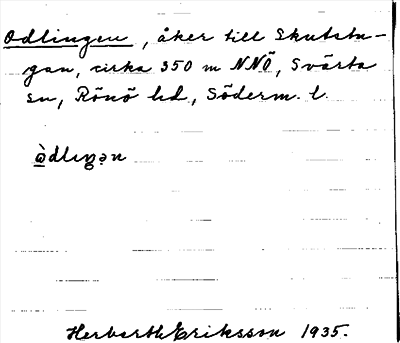 Odlingen, åker till Skutstu-
gan, cirka 350 m NNÖ, Svärta
sn, Rönö hd, Söderm. l.
Herbert Eriksson 1935.